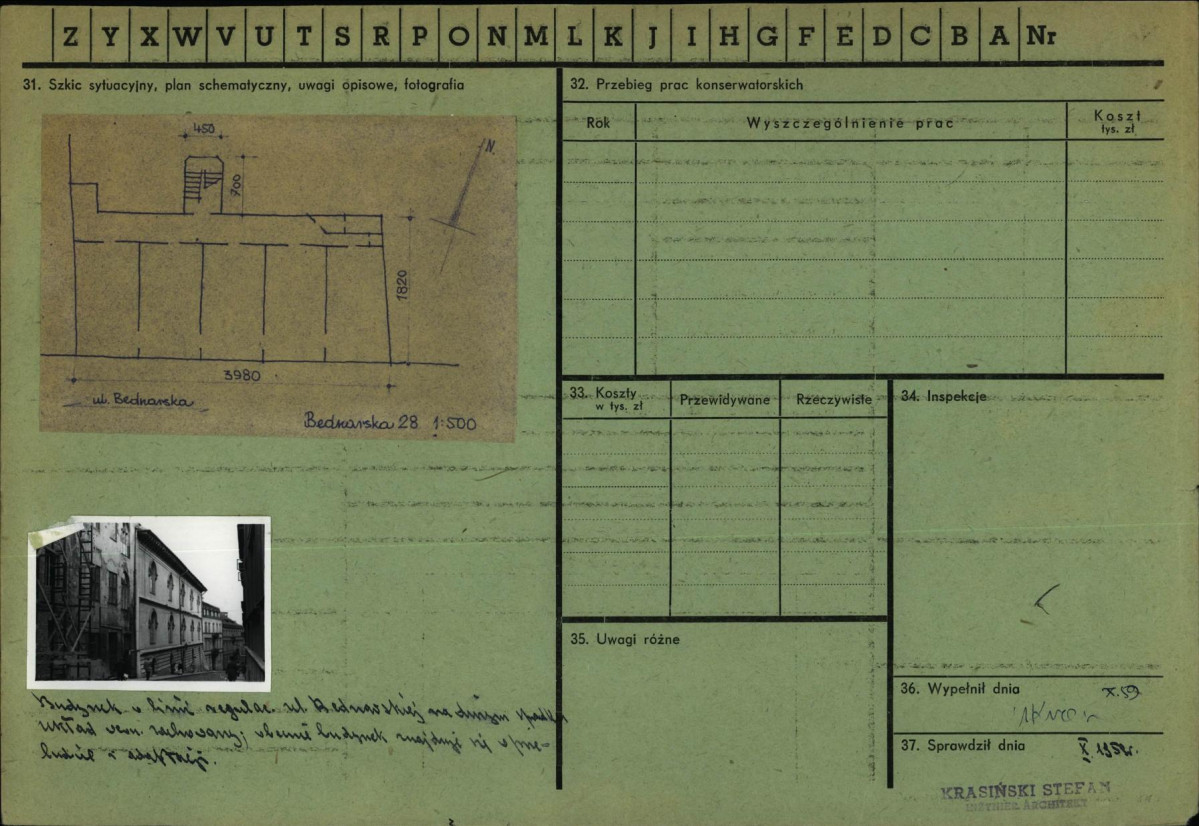 Z Y X W V U T S R P O N M L K J I H G F E D C B A Nr
31. Szkic sytuacyjny, plan schematyczny, uwagi opisowe, fotografia
450
700
N.
1820
3980
ul. Bednarska
Bednarska 28 1:500
Budynek w linii regulac. ul. Bednarskiej na dużym spadku
układ wewn. zachowany; obecnie budynek znajduje się w prze-
budowie i adaptacji.
32. Przebieg prac konserwatorskich
Rok
Wyszczególnienie prac
Koszt
tys. zł
33. Koszty
w tys. zł
Przewidywane
Rzeczywiste
34. Inspekcje
35. Uwagi różne
36. Wypełnił dnia
X.59
37. Sprawdził dnia
X 1959r.
KRASIŃSKI STEFAN
INŻYNIER ARCHITEKT